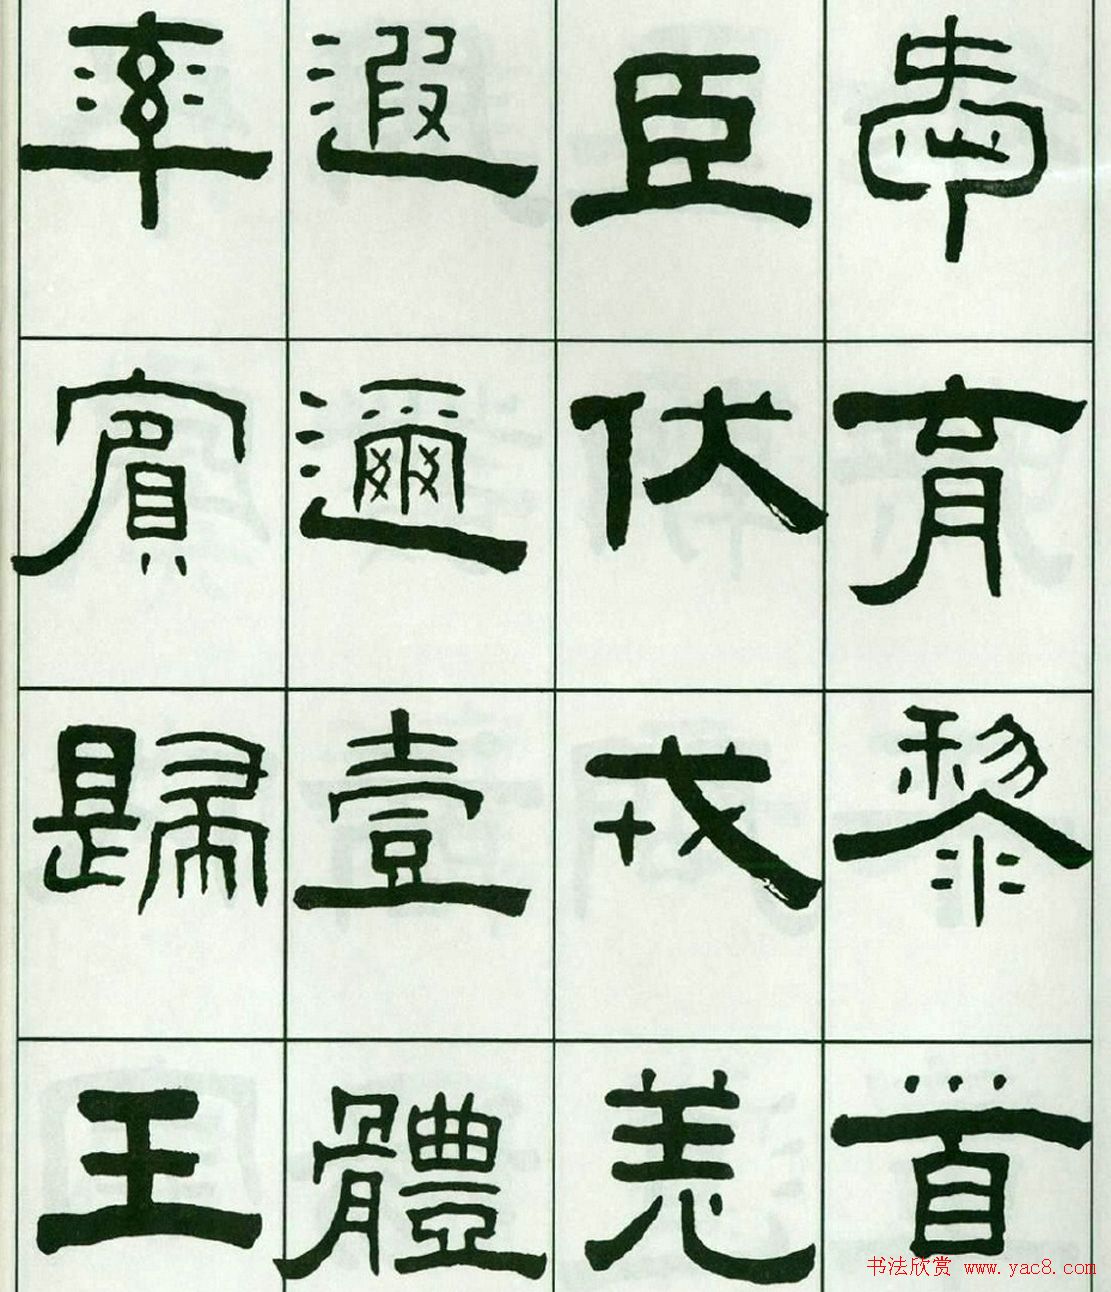 愛育黎首
臣伏戎羌
遐邇壹體
率賓歸王
书法欣赏 www.yac8.com